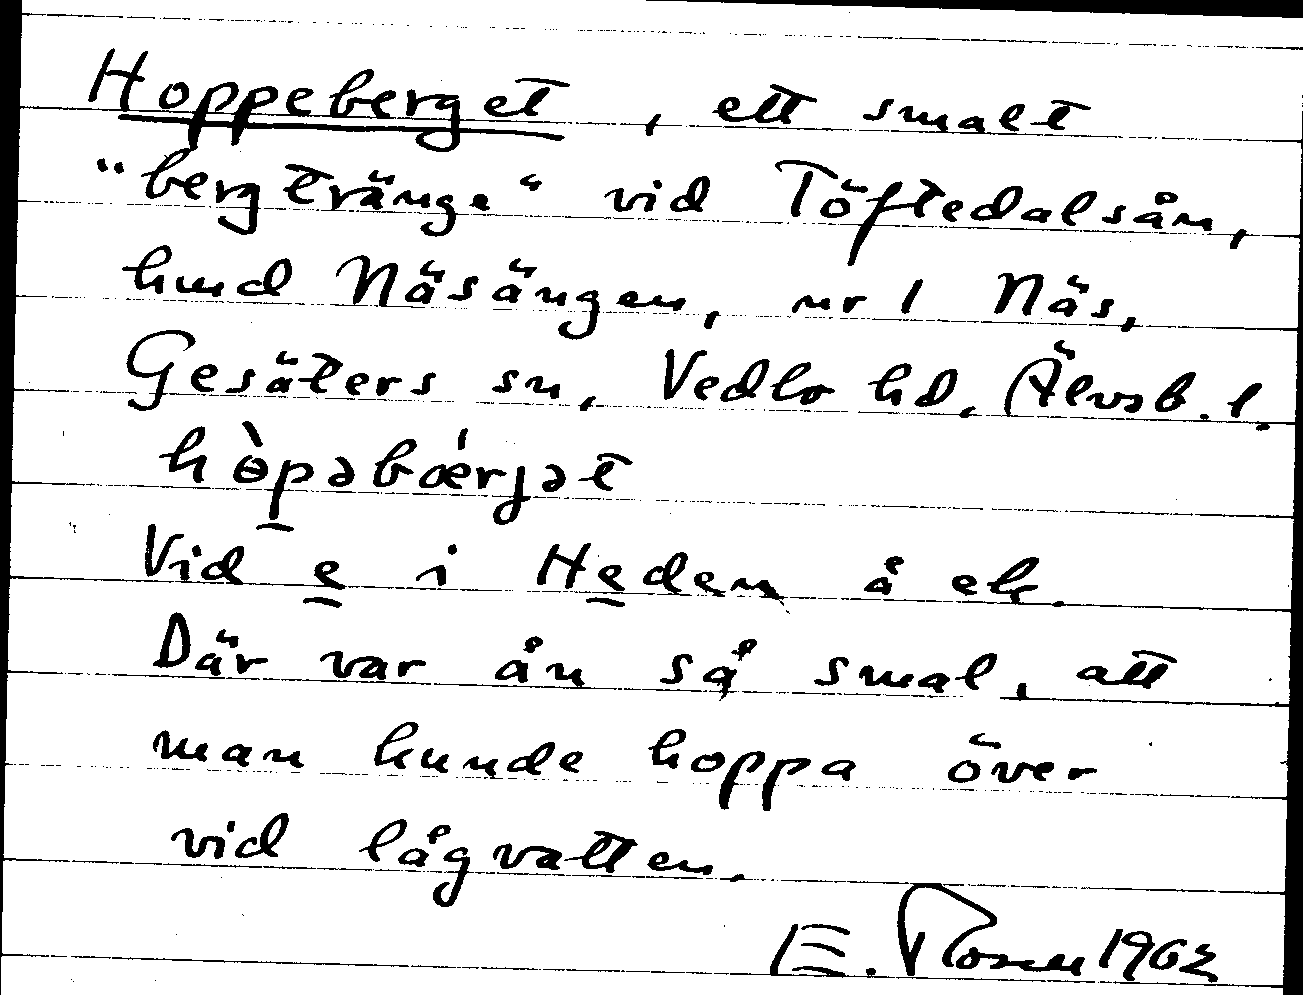 Hoppeberget, ett smalt
"bergtränge" vid Töftedalsån,
kund Näsängen, nr 1 Näs,
Gesäters sn, Vedbo hd, Älvsb. l.
hɵ̀pəbœ́rjət
Vid e i Heden å ek.
Där var ån så smal, att
man kunde hoppa över
vid lågvatten.
E. Rosén 1962